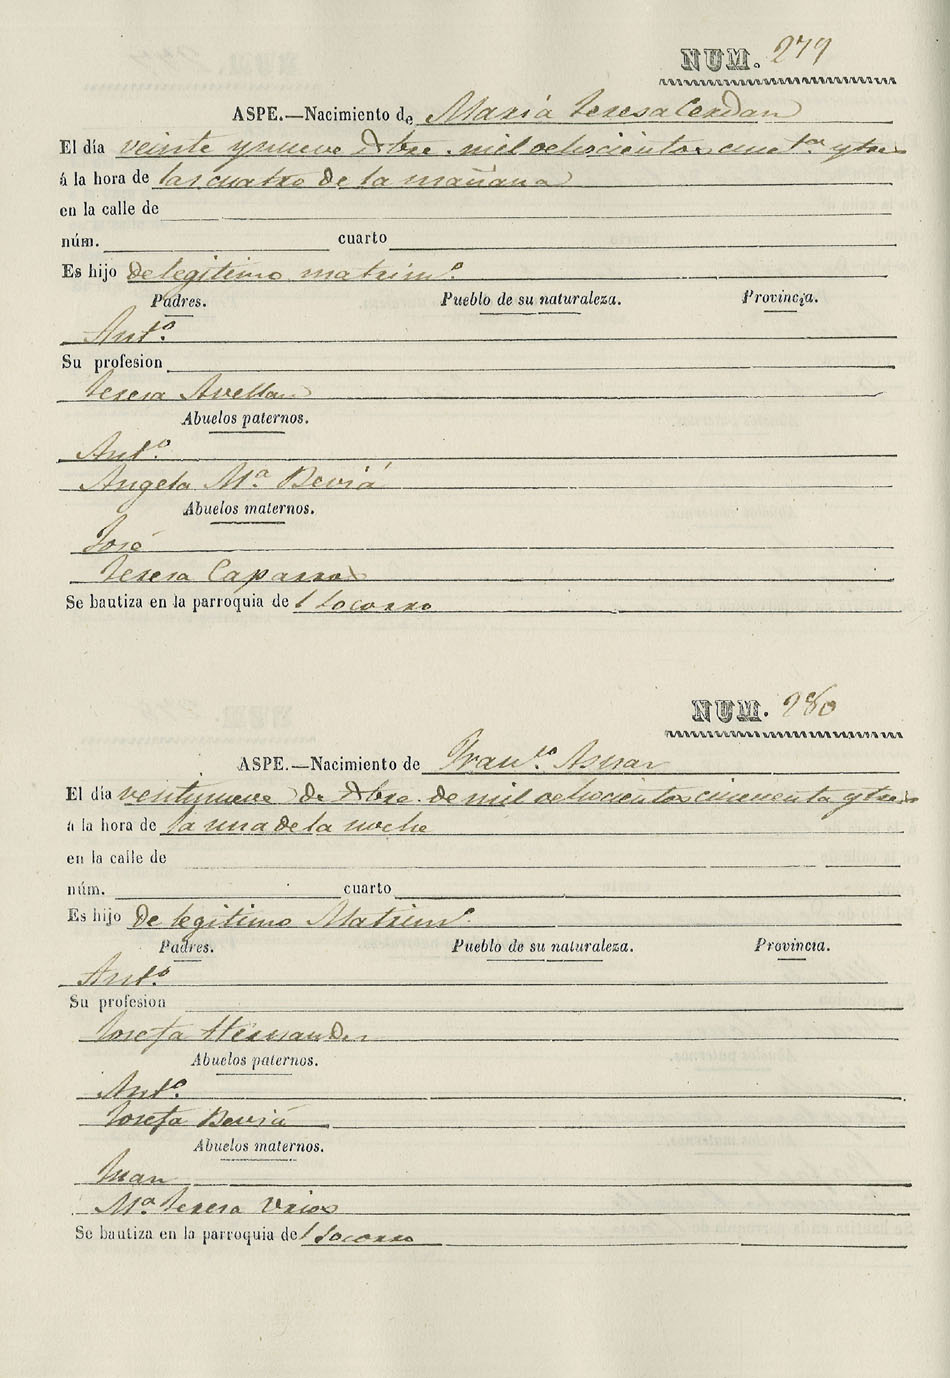 NUM. 279
ASPE.—Nacimiento de Maria Teresa Cerdan
El día veinte y nueve Dbre. mil ochocientos cincta y tres
á la hora de las cuatro de la mañana
en la calle de
núm. cuarto
Es hijo de legitimo matrimo.
Padres. Pueblo de su naturaleza. Provincia.
Anto.
Su profesion
Teresa Avellan
Abuelos paternos.
Anto.
Angela Ma. Beviá
Abuelos maternos.
José
Teresa Caparros
Se bautiza en la parroquia de l Socorro
NUM. 280
ASPE.—Nacimiento de Franco. Asnar
El día veintynueve de Dbre. de mil ochocientos cincuenta y tres
á la hora de la una de la noche
en la calle de
núm. cuarto
Es hijo de legitimo Matrimo.
Padres. Pueblo de su naturaleza. Provincia.
Anto.
Su profesion
Josefa Hernandes
Abuelos paternos.
Anto.
Josefa Beviá
Abuelos maternos.
Juan
Ma. Teresa Urios
Se bautiza en la parroquia de l Socorro